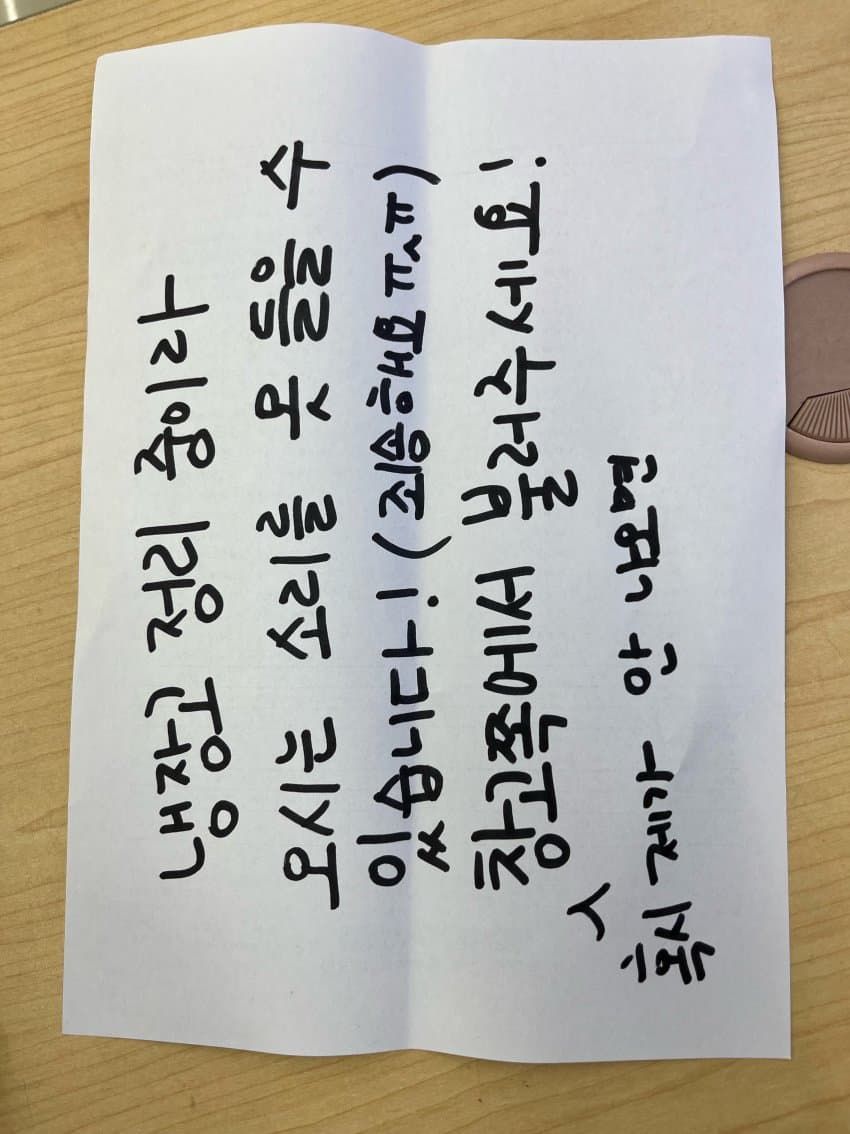 냉장고 정리 중이라
오시는 소리를 못 들을 수
있습니다! (죄송해요 ㅠㅅㅠ)
창고쪽에서 불러주세요!
^
혹시 제가 안 나오면